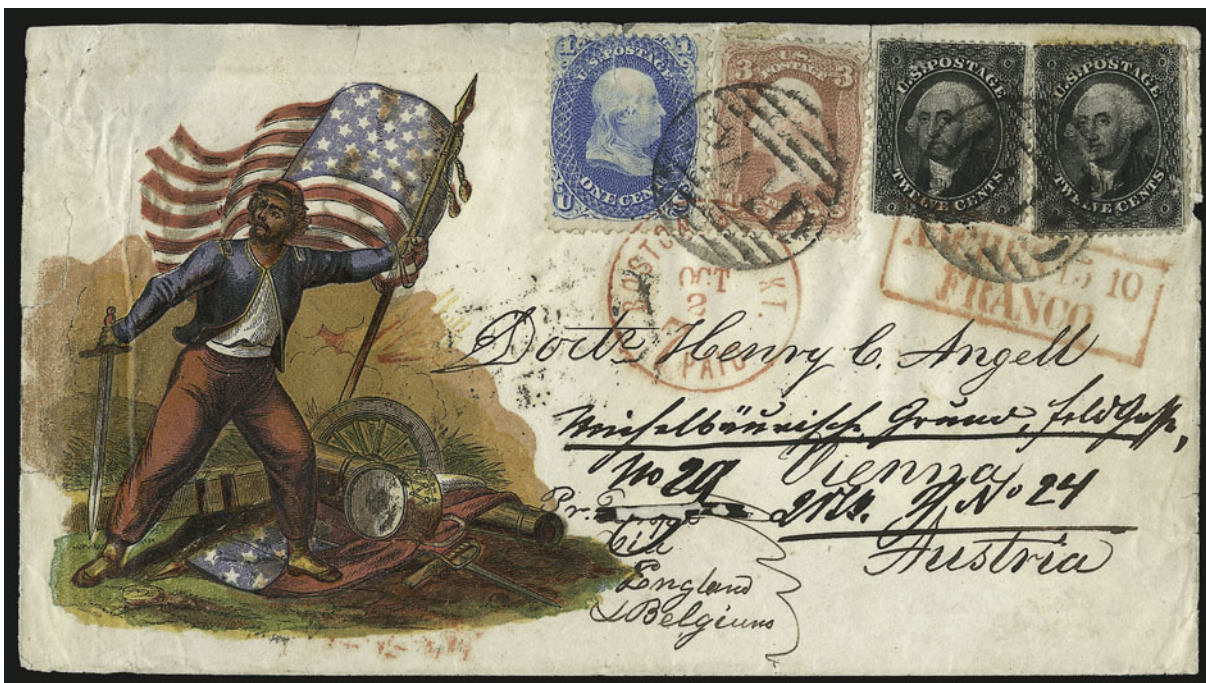 1 U.S. POSTAGE 1
ONE CENT
U
3 U.S. 3
POSTAGE
U.S. POSTAGE
TWELVE CENTS
U.S. POSTAGE
TWELVE CENTS
BOSTON BR. PKT.
OCT
2
PAID
10
FRANCO
Henry C. Angell
Grund, feldGasse,
No 29 Vienna
No 24
Pr.
Via Austria
England
& Belgium